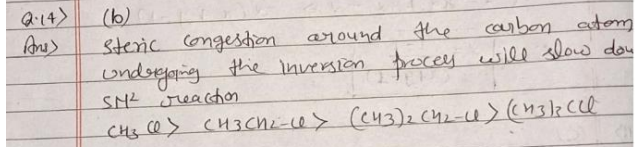 Q.14) (b)
Ans) Steric congestion around the carbon atom
undergoing the inversion procey will slow dow
SN2 reaction
CH3 Cl > CH3CH2-Cl > (CH3)2 CH2-Cl > (CH3)3 CCl